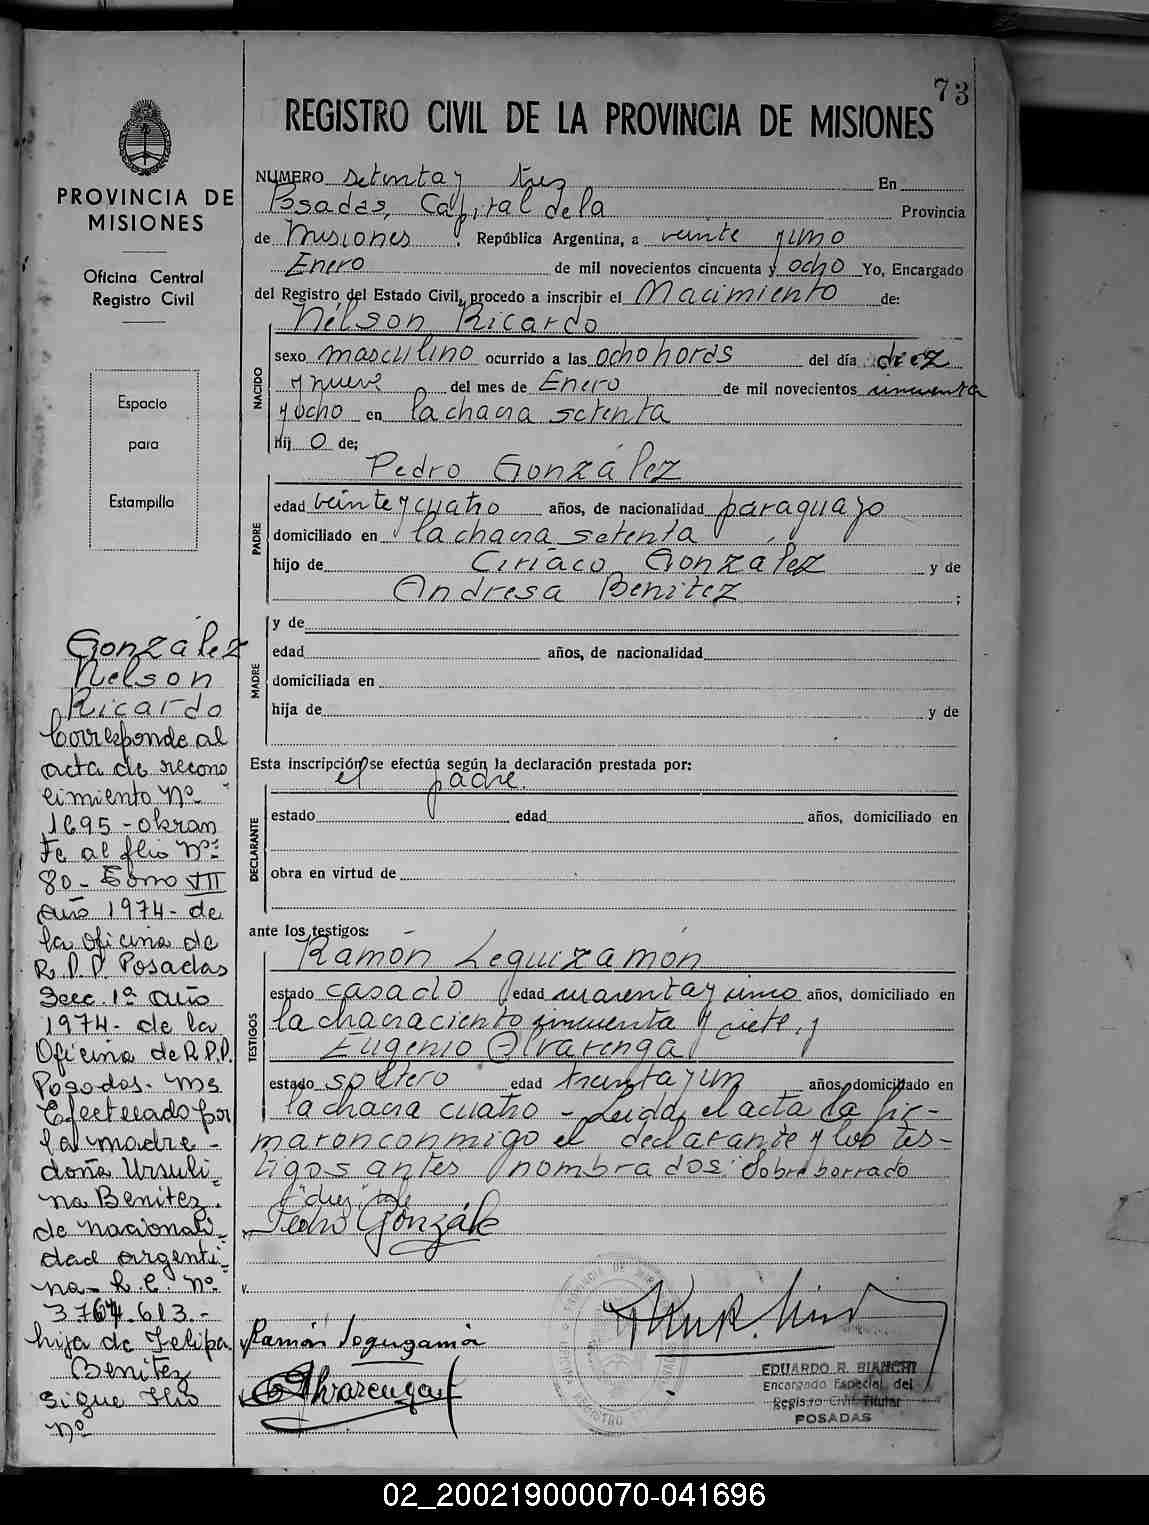 73
REGISTRO CIVIL DE LA PROVINCIA DE MISIONES
PROVINCIA DE
MISIONES
Oficina Central
Registro Civil
Espacio
para
Estampilla
González
Nelson
Ricardo
Corresponde al
acta de recono
cimiento Nº
1695 - obran
te al flio Nº:
80 - Tomo III
año 1974 - de
la oficina de
R.P.P. Posadas
Secc. 1ª año
1974 - de la
Oficina de R.P.P.
Posadas - Ms
Efectuado por
la madre -
doña Ursuli=
na Benitez.
de nacionali=
dad argenti=
na - L.C. Nº
3764.613.-
hija de Felipa
Benitez
Sigue flio
Nº
NUMERO setenta y tres En
Posadas, Capital de la Provincia
de Misiones República Argentina, a veinte y uno
Enero de mil novecientos cincuenta y ocho Yo, Encargado
del Registro del Estado Civil, procedo a inscribir el Nacimiento de:
NACIDO
Nélson Ricardo
sexo masculino ocurrido a las ocho horas del día diez
y nueve del mes de Enero de mil novecientos cincuenta
y ocho en la chacra setenta
hij o de;
PADRE
Pedro González
edad veinte y cuatro años, de nacionalidad paraguayo
domiciliado en la chacra setenta
hijo de Ciriaco González y de
Andresa Benítez ;
MADRE
y de
edad años, de nacionalidad
domiciliada en
hija de y de
Esta inscripción se efectúa según la declaración prestada por:
el padre.
DECLARANTE
estado edad años, domiciliado en
obra en virtud de
ante los testigos:
TESTIGOS
Ramón Leguizamón
estado casado edad cuarenta y uno años, domiciliado en
la chacra ciento cincuenta y siete, y
Eugenio Alvarenga
estado soltero edad treinta y un años, domiciliado en
la chacra cuatro - Leida el acta la fir-
maron conmigo el declarante y los tes-
tigos antes nombrados: Sobre borrado
"diez" vale
Pedro González
Ramón Leguizamón
E Alvarenga
EDUARDO R. BIANCHI
Encargado Especial del
Registro Civil Titular
POSADAS
02_200219000070-041696